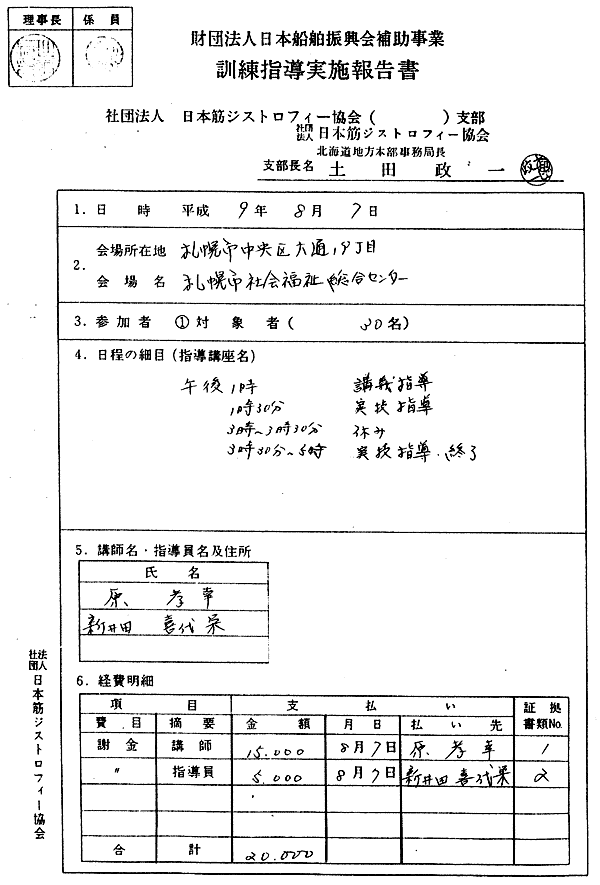 理事長 係員
財団法人日本船舶振興会補助事業
訓練指導実施報告書
社団法人 日本筋ジストロフィー協会( )支部
社団法人日本筋ジストロフィー協会
北海道地方本部事務局長
支部長名 土田政一
1. 日時 平成 9年 8月 7日
2. 会場所在地 札幌市中央区大通19丁目
会場名 札幌市社会福祉総合センター
3. 参加者 ①対象者( 30名)
4. 日程の細目(指導講座名)
午後1時 講義指導
1時30分 実技指導
3時~3時30分 休み
3時30分~5時 実技指導.終了
5. 講師名・指導員名及住所
氏名
原 孝幸
新井田 喜代栄
6. 経費明細
項目 支払い 証拠書類No.
費目 摘要 金額 月日 払い先
謝金 講師 15.000 8月7日 原孝幸 1
〃 指導員 5.000 8月7日 新井田喜代栄 2
合計 20.000
社団法人日本筋ジストロフィー協会